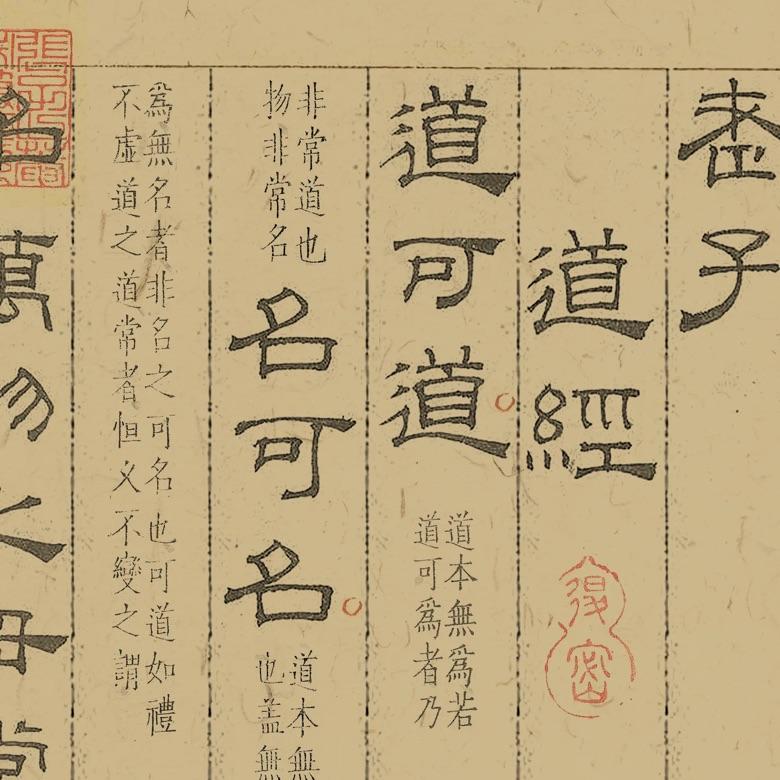 老子
道經
道可道
道本無爲若
道可爲者乃
非常道也
物非常名
名可名
道本無
也盖無
爲無名者非名之可名也可道如禮
不虛道之道常者恒义不變之謂
名萬物之母常